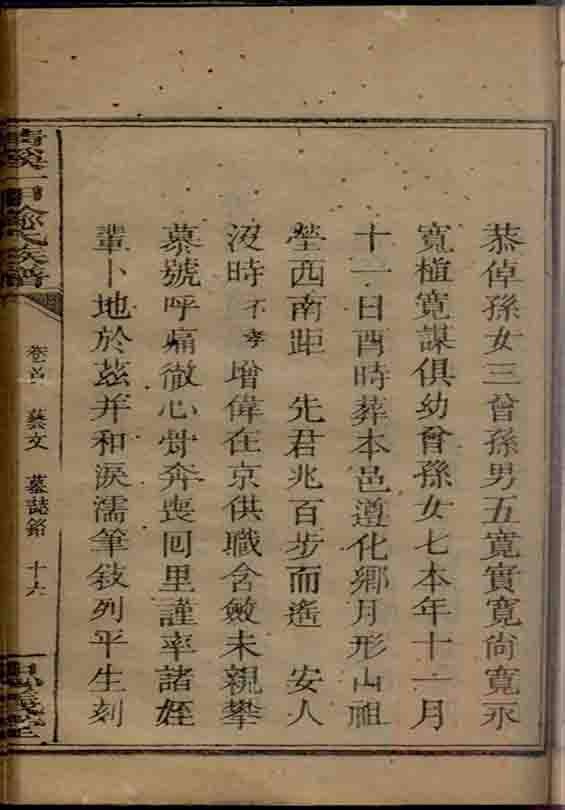 恭倬孫女三曾孫男五寬實寬尚寬永
寬植寬謀俱幼曾孫女七本年十一月
十一日酉時葬本邑遵化鄉月形山祖
塋西南距 先君兆百步而遙 安人
沒時不孝增偉在京供職含斂未親攀
慕號呼痛徹心骨奔喪回里謹率諸姪
輩卜地於茲并和淚濡筆敍列平生刻
卷首 藝文 墓誌銘 十六